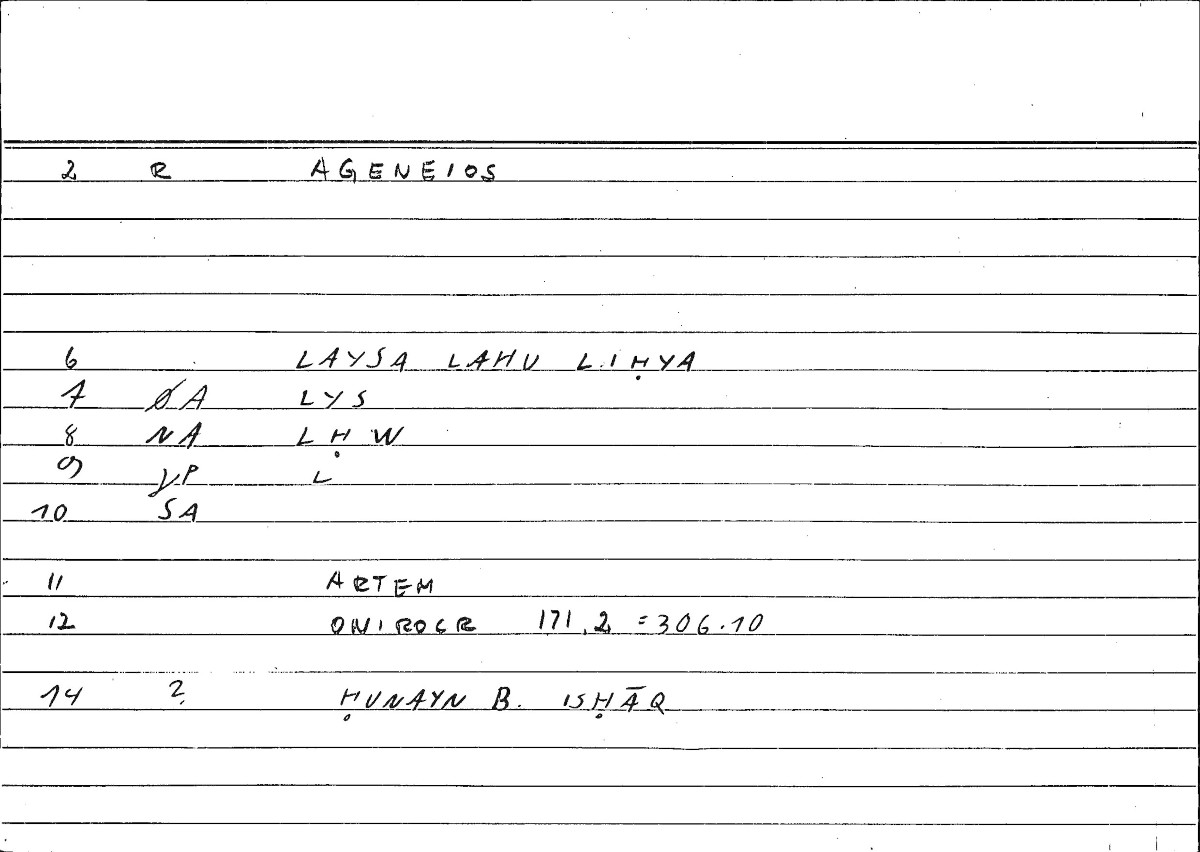 2 R AGENEIOS
6 LAYSA LAHU LIḤYA
7 ØA LYS
8 NA LḤW
9 γP L
10 SA
11 ARTEM
12 ONIROCR 171,2 = 306.10
14 2 ḤUNAYN B. ISḤĀQ